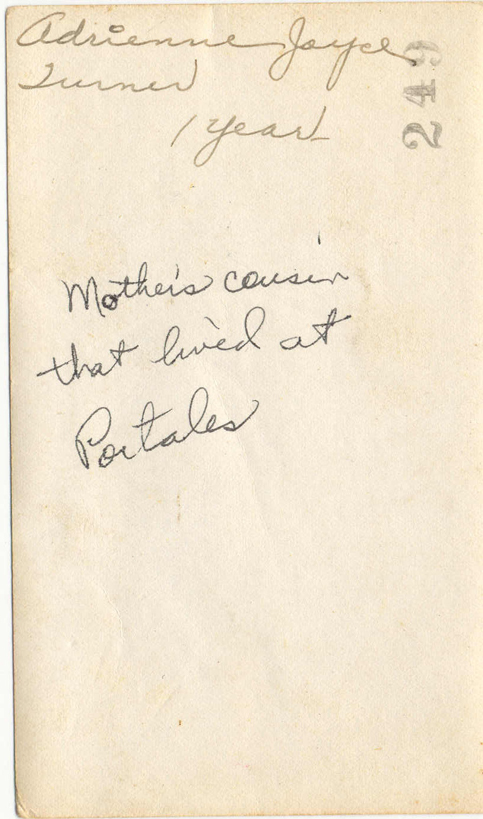 Adrienne Joyce
Turner
1 year
249
Mother's cousin
that lived at
Portales